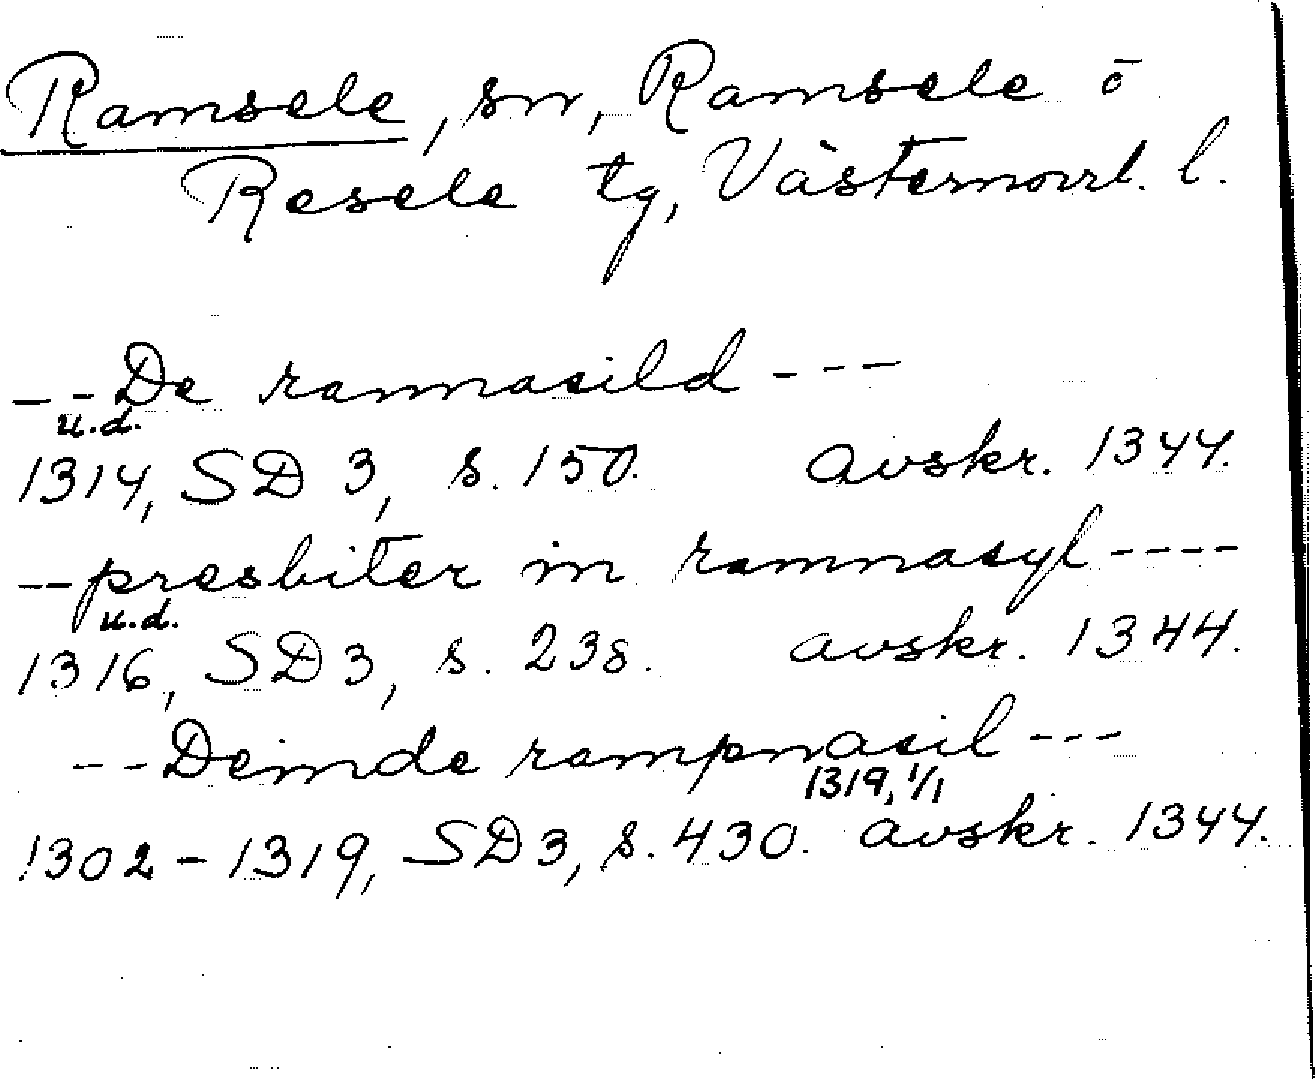 Ramsele, sn, Ramsele o
Resele tg, Västernorrl. l.
--De ramnasild---
u.d.
1314, SD 3, s. 150. avskr. 1344.
--presbiter in ramnasyl----
u.d.
1316, SD 3, s. 238. avskr. 1344.
--Deinde rampnasil---
1319, 1/1
1302-1319, SD 3, s. 430. avskr. 1344.